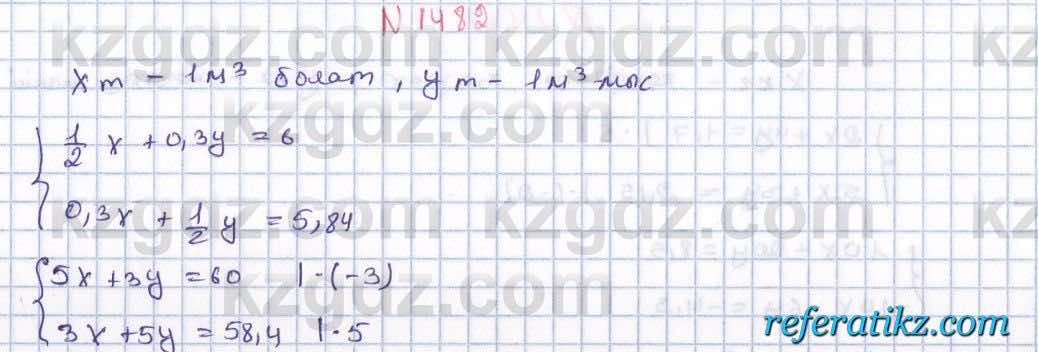 N 1482
x т - 1 м³ болат, y т - 1 м³ мыс
{ 1/2 x + 0,3y = 6
0,3x + 1/2 y = 5,84
{ 5x + 3y = 60 | · (-3)
3x + 5y = 58,4 | · 5
kzgdz.com
referatikz.com